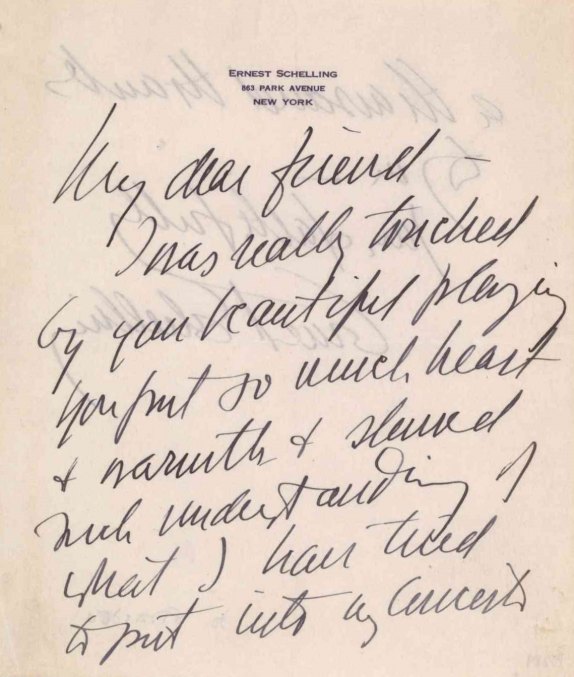 ERNEST SCHELLING
863 PARK AVENUE
NEW YORK
My dear friend –
I was really touched
by your beautiful playing
you put so much heart
& warmth & showed
such understanding of
what I have tried
to put into my Concerto